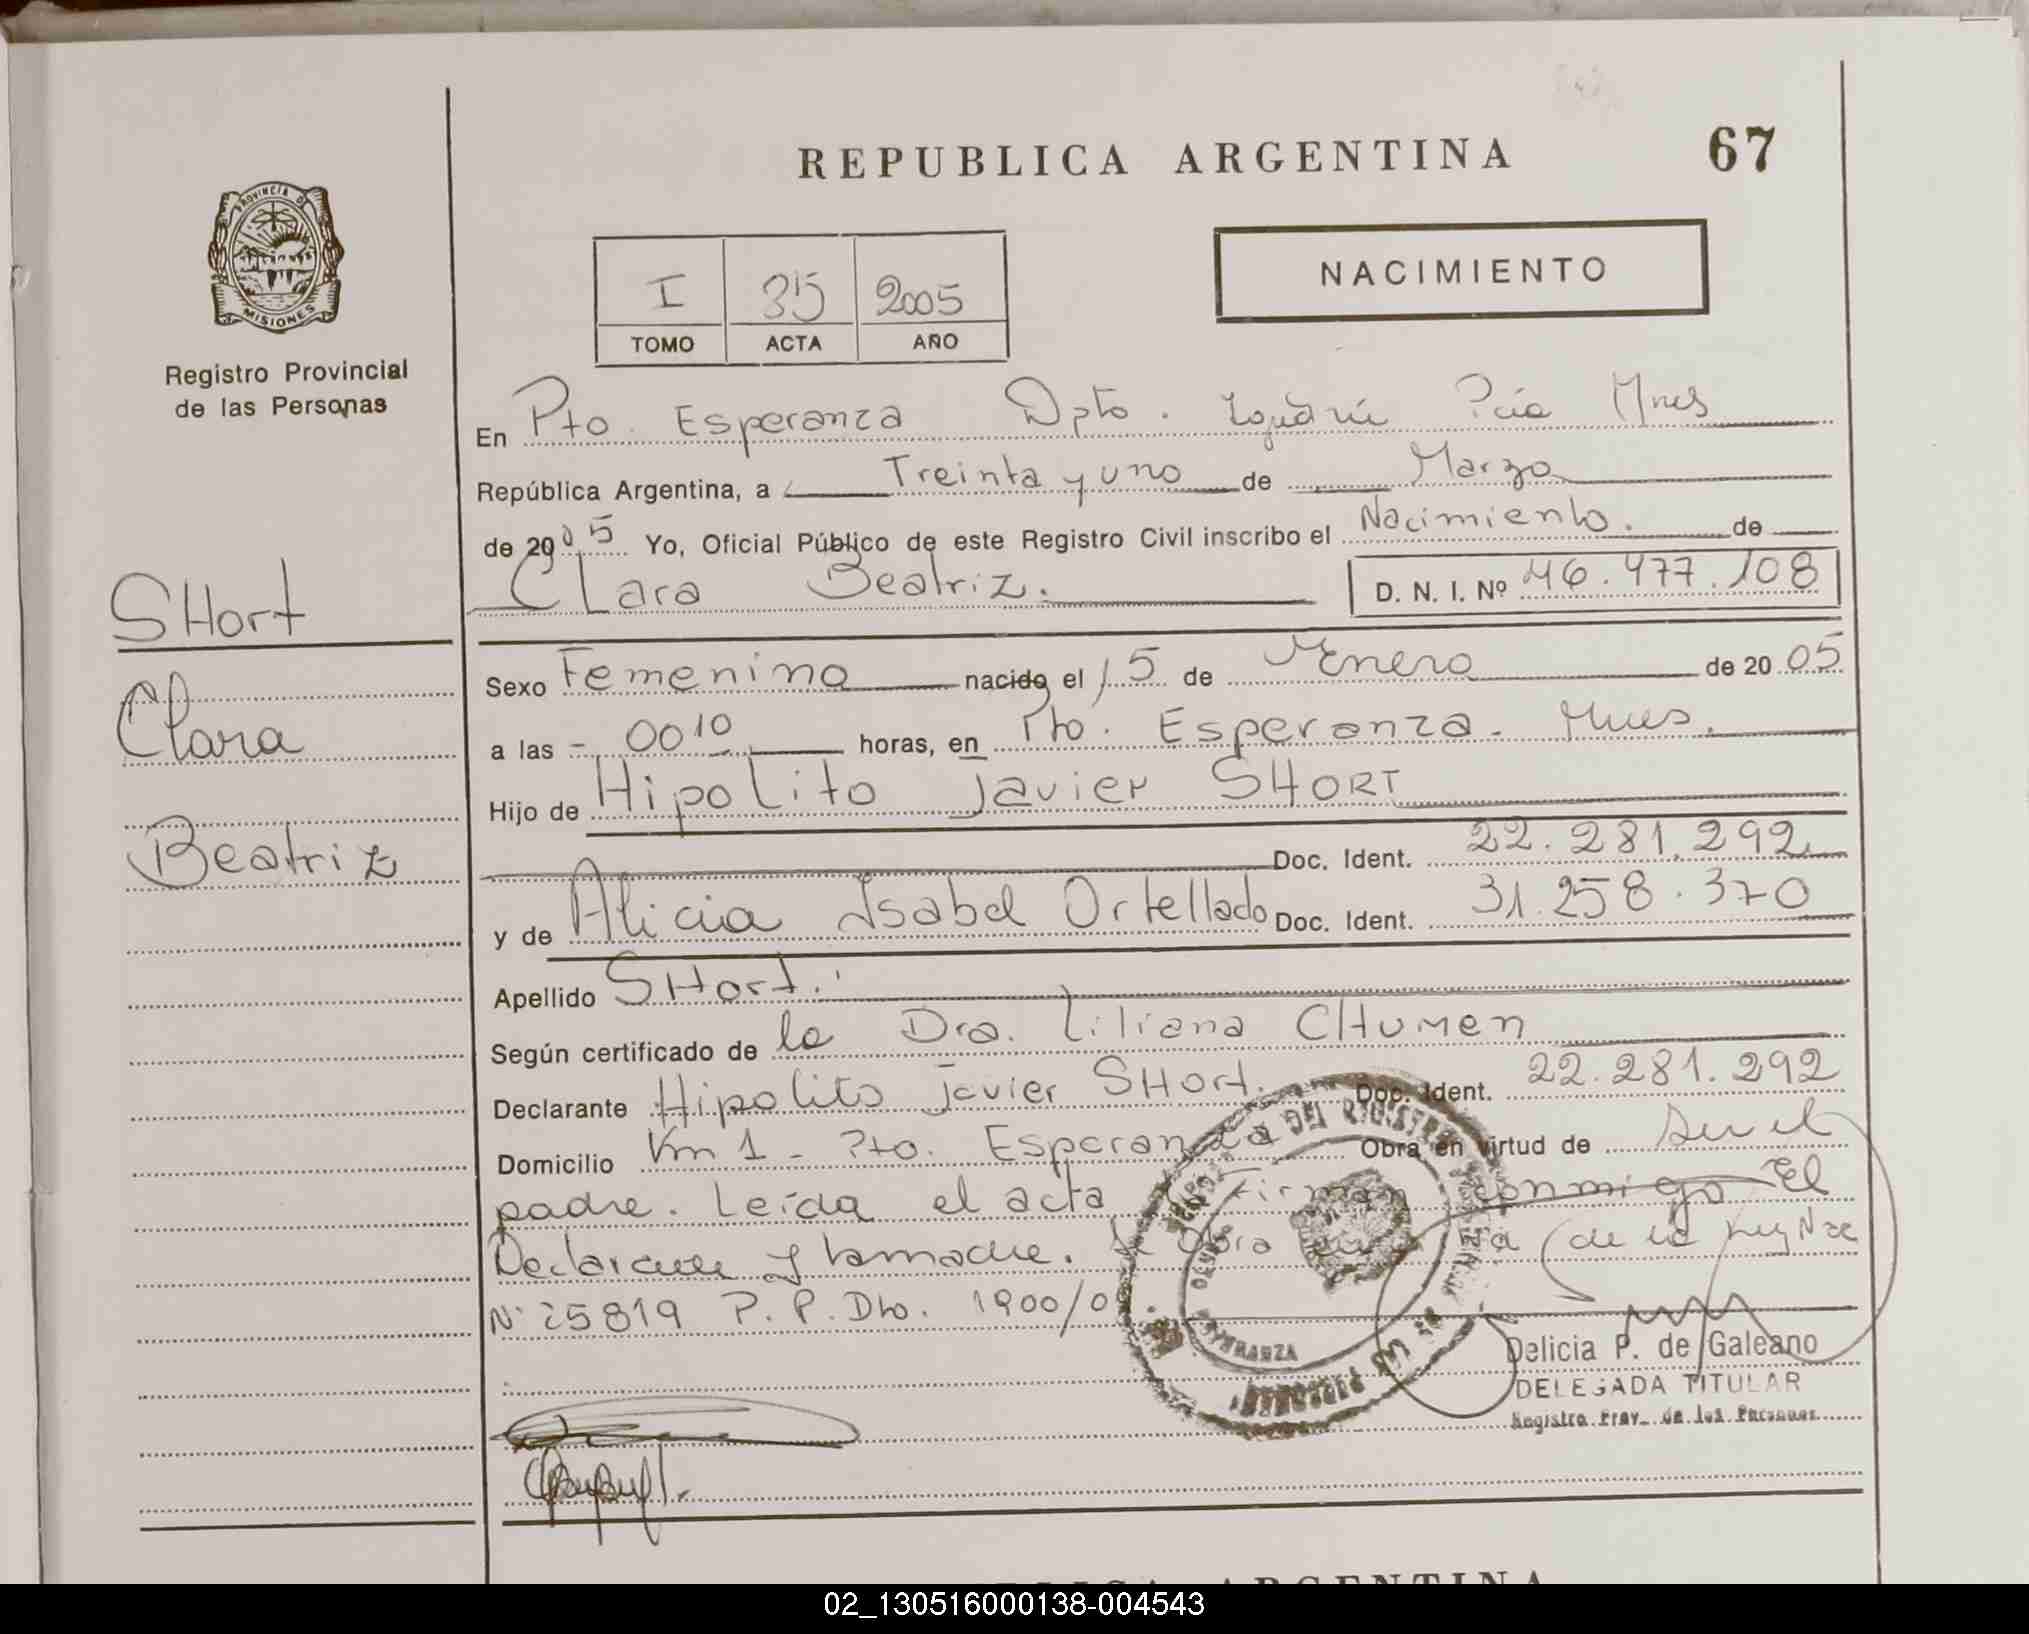 REPUBLICA ARGENTINA
67
PROVINCIA DE
MISIONES
Registro Provincial
de las Personas
I 35 2005
TOMO ACTA AÑO
NACIMIENTO
En Pto. Esperanza Dpto. Iguazú Pcia Mnes
República Argentina, a Treinta y uno de Marzo
de 2005 Yo, Oficial Público de este Registro Civil inscribo el Nacimiento. de
Clara Beatriz. D. N. I. Nº 46.477.108
SHort
Clara
Beatriz
Sexo Femenino nacido el 15 de Enero de 2005
a las - 0010 horas, en Pto. Esperanza. Mnes.
Hijo de Hipolito Javier SHORT
Doc. Ident. 22.281.292
y de Alicia Isabel Ortellado Doc. Ident. 31.258.370
Apellido SHort.
Según certificado de la Dra. Liliana CHumen
Declarante Hipolito Javier SHort. Doc. Ident. 22.281.292
Domicilio Km 1 - Pto. Esperanza Obra en virtud de ser el
padre. Leída el acta firman conmigo El
Declarante y la madre. Se Obra de la Ley Nac
Nº 25819 P. P. Dto. 1900/0
DEL REGISTRO
DE LAS PERSONAS
ESPERANZA
Delicia P. de Galeano
DELEGADA TITULAR
Registro Prov. de las Personas
REPUBLICA ARGENTINA
02_130516000138-004543